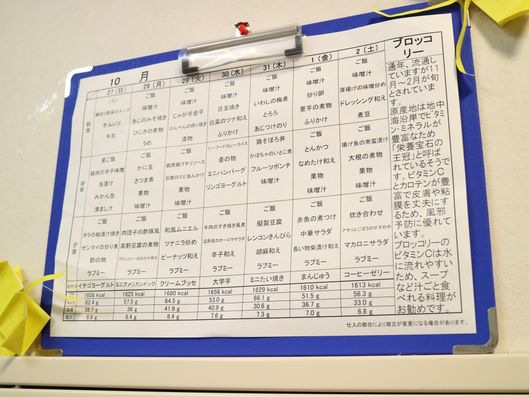 10 月
27(日) 28(月) 29(火) 30(水) 31(木) 1(金) 2(土)
朝食
パン ご飯 ご飯 ご飯 ご飯 ご飯 ご飯
味噌汁 味噌汁 味噌汁 味噌汁 味噌汁 味噌汁
オムレツ あじのみそ焼き じゃが芋金平 目玉焼き いわしの梅煮 炒り卵 厚揚げの味噌炒め
牛乳 ひじきの煮物 白菜のツナ和え とろろ 里芋の煮物 ドレッシング和え
うめ 漬物 ふりかけ あじつけのり ふりかけ 煮豆
昼食
栗ご飯 ご飯 ご飯 シーフードカレーライス 鶏そぼろ丼 とんかつ ご飯
かに玉 香の物 かぼちゃのいとこ煮 なめたけ和え 揚げ魚の南蛮煮
清漬け きつま煮 ミニハンバーグ フルーツポンチ 果物 大根の煮物
みかん缶 果物 果物 リンゴヨーグルト 味噌汁 味噌汁 果物
清まし汁 味噌汁 味噌汁 味噌汁
夕食
ご飯 ご飯 ご飯 ご飯 ご飯 ご飯 ご飯
タラの粕漬け焼き 肉団子の酢豚風 和風ムニエル 牛肉のすき焼き風煮 擬製豆腐 赤魚のつけ 炊き合わせ
ゼンマイの炒り煮 高野豆腐の煮物 ツナニラ炒め レンコンきんぴら 中華サラダ
酢の物 ピーナッツ和え 辛子和え 胡麻和え 長い物柴漬け和え マカロニサラダ
ラブミー ラブミー ラブミー ラブミー ラブミー ラブミー ラブミー
イチゴヨーグルト ミニアメリカンドック クリームブッセ 大学芋 ミニたい焼き まんじゅう コーヒーゼリー
1606 kcal 1625 kcal 1680 kcal 1656 kcal 1629 kcal 1610 kcal 1613 kcal
62.4 g 51.5 g 64.5 g 53.0 g 66.1 g 51.5 g 56.3 g
38.7 g 36 g 41.9 g 40.9 g 30.6 g 36.7 g 33.0 g
8.9 g 8.4 g 8.4 g 7.6 g 7.3 g 7.0 g 6.8 g
仕入の都合により献立が変更になる場合があります。
ブロッコリー
通年、流通し
ていますが11
月～2月が旬
とされていま
す。
原産地は地中
海沿岸でビタミ
ン・ミネラルが
豊富なため
「栄養宝石の
王冠」と呼ば
れているそうで
す。ビタミンC
とカロテンが豊
富で皮膚や粘
膜を丈夫にす
るため、風邪
予防に優れて
います。
ブロッコリーの
ビタミンCは水
に流れやすい
ため、スープ
など汁ごと食
べれる料理が
お勧めです。